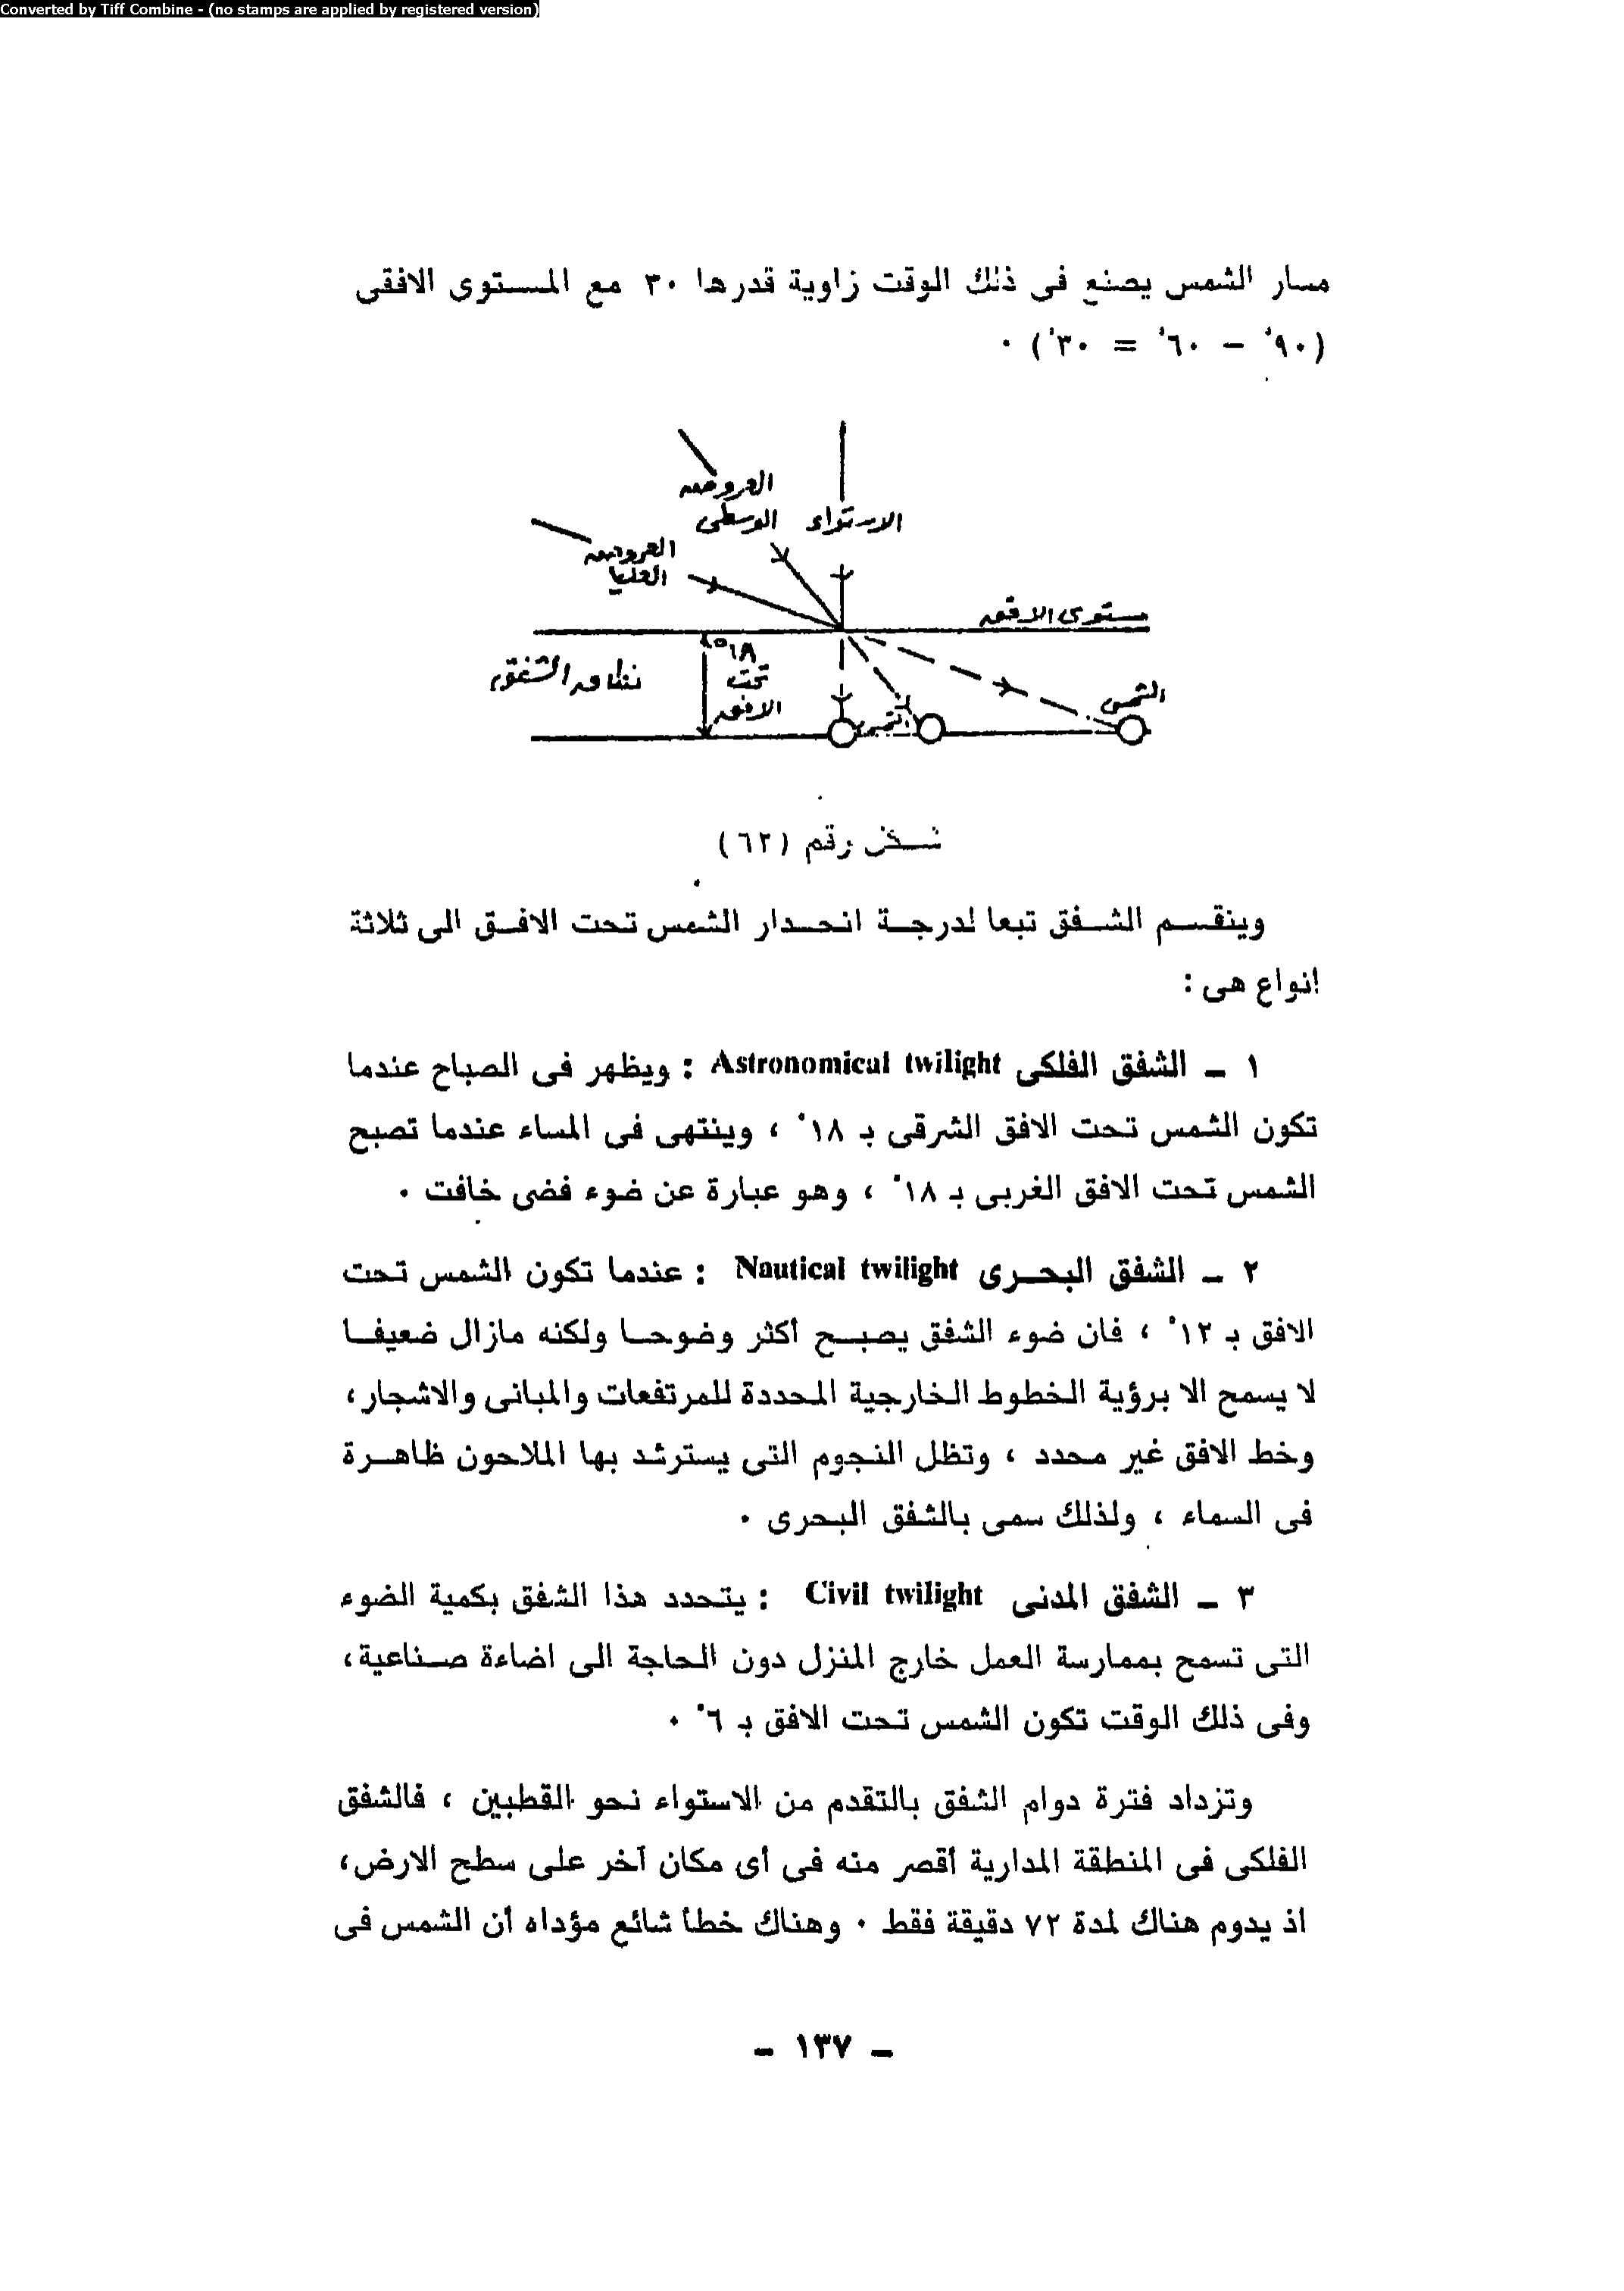 Converted by Tiff Combine - (no stamps are applied by registered version)
مسار الشمس يصنع فى ذلك الوقت زاوية قدرها ٣٠ مع المستوى الافقى
(٩٠° – ٦٠° = ٣٠°) ٠
العروض
الوسطى
الاستواء
العروض
العليا
مستوى الافق
١٨°
تحت
الافق
نطاق الشفق
الشمس
الشمس
شكل رقم (٦٢)
وينقسم الشفق تبعا لدرجة انحدار الشمس تحت الافق الى ثلاثة
انواع هى :
١ – الشفق الفلكى Astronomical twilight : ويظهر فى الصباح عندما
تكون الشمس تحت الافق الشرقى بـ ١٨° ، وينتهى فى المساء عندما تصبح
الشمس تحت الافق الغربى بـ ١٨° ، وهو عبارة عن ضوء فضى خافت ٠
٢ – الشفق البحرى Nautical twilight : عندما تكون الشمس تحت
الافق بـ ١٢° ، فان ضوء الشفق يصبح أكثر وضوحا ولكنه مازال ضعيفا
لا يسمح الا برؤية الخطوط الخارجية المحددة للمرتفعات والمبانى والاشجار،
وخط الافق غير محدد ، وتظل النجوم التى يسترشد بها الملاحون ظاهرة
فى السماء ، ولذلك سمى بالشفق البحرى ٠
٣ – الشفق المدنى Civil twilight : يتحدد هذا الشفق بكمية الضوء
التى تسمح بممارسة العمل خارج المنزل دون الحاجة الى اضاءة صناعية،
وفى ذلك الوقت تكون الشمس تحت الافق بـ ٦° ٠
وتزداد فترة دوام الشفق بالتقدم من الاستواء نحو القطبين ، فالشفق
الفلكى فى المنطقة المدارية أقصر منه فى أى مكان آخر على سطح الارض،
اذ يدوم هناك لمدة ٧٢ دقيقة فقط ٠ وهناك خطأ شائع مؤداه أن الشمس فى
– ١٣٧ –